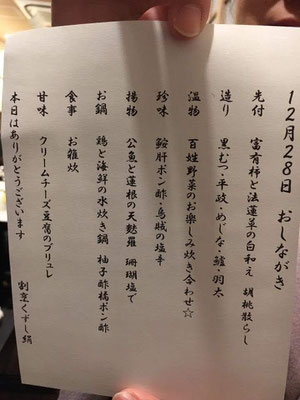 12月28日 おしながき
先付 富有柿と法蓮草の白和え 胡桃散らし
造り 黒むつ・平政・めじな・鱸・羽太
温物 百姓野菜のお楽しみ炊き合わせ☆
珍味 鮟肝ポン酢・烏賊の塩辛
揚物 公魚と蓮根の天麩羅 珊瑚塩で
お鍋 鶏と海鮮の水炊き鍋 柚子酢橘ポン酢
食事 お雑炊
甘味 クリームチーズ豆腐のブリュレ
本日はありがとうございます 割烹くずし絹